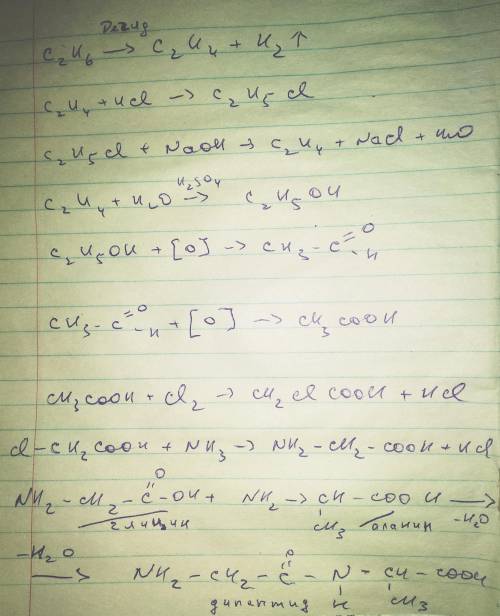 Дегид
C₂H₆ → C₂H₄ + H₂↑
C₂H₄ + HCl → C₂H₅Cl
C₂H₅Cl + NaOH → C₂H₄ + NaCl + H₂O
H₂SO₄
C₂H₄ + H₂O → C₂H₅OH
C₂H₅OH + [O] → CH₃-C=O-H
CH₃-C=O-H + [O] → CH₃COOH
CH₃COOH + Cl₂ → CH₂ClCOOH + HCl
Cl-CH₂COOH + NH₃ → NH₂-CH₂-COOH + HCl
O
NH₂-CH₂-C-OH + NH₂→CH-COOH →
-H₂O
глицин CH₃ аланин
-H₂O O
→ NH₂-CH₂-C-N-CH-COOH
дипептид H CH₃